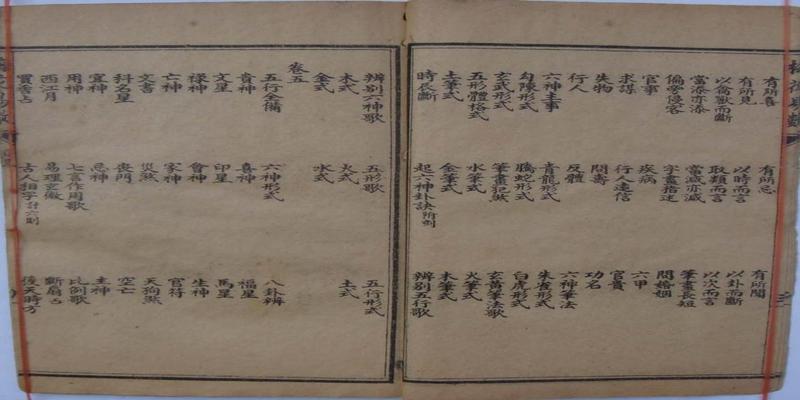 有所喜 有所忌 有所聞
有所見 以時而言 以卦而斷
以禽獸而斷 取類而言 以次而言
當添亦添 當減亦減 筆畫長短
偏旁侵客 字畫指迷 問婚姻
官事 疾病 六甲
求謀 行人遠信 官貴
失物 問壽 功名
行人 反體
六神主事 青龍形式 六神筆法 朱雀形式
勾陳形式 騰蛇形式 白虎形式
玄武形式 筆畫犯煞 玄黄筆法歌
五形體格式 水筆式 火筆式
土筆式 金筆式 木筆式
時辰斷 起六神卦訣附例 辨别五行歌
辨别六神歌 五形歌 五行形式
木式 火式 土式
金式 水式
卷五
五行全備 六神形式 八卦辨
貴神 喜神 福星
文星 印星 馬星
祿神 會神 生神
亡神 家神 官符
文書 災煞 天狗煞
科名星 喪門 空亡
宜神 忌神 主神
用神 七言作用歌 比例歌
西江月 易理玄微 斷扇占
買香占 古人相字計六則 後天時方